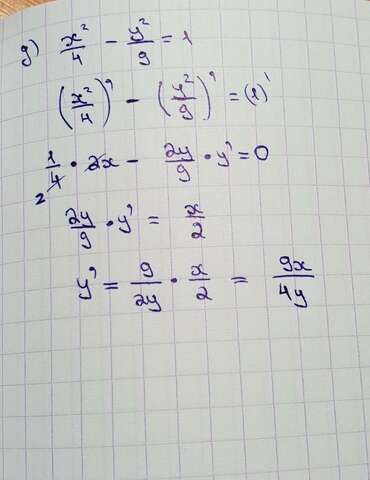 g) x²/4 - y²/9 = 1
(x²/4)' - (y²/9)' = (1)'
1/4 · 2x - 2y/9 · y' = 0
2
2y/9 · y' = x/2
y' = 9/2y · x/2 = 9x/4y